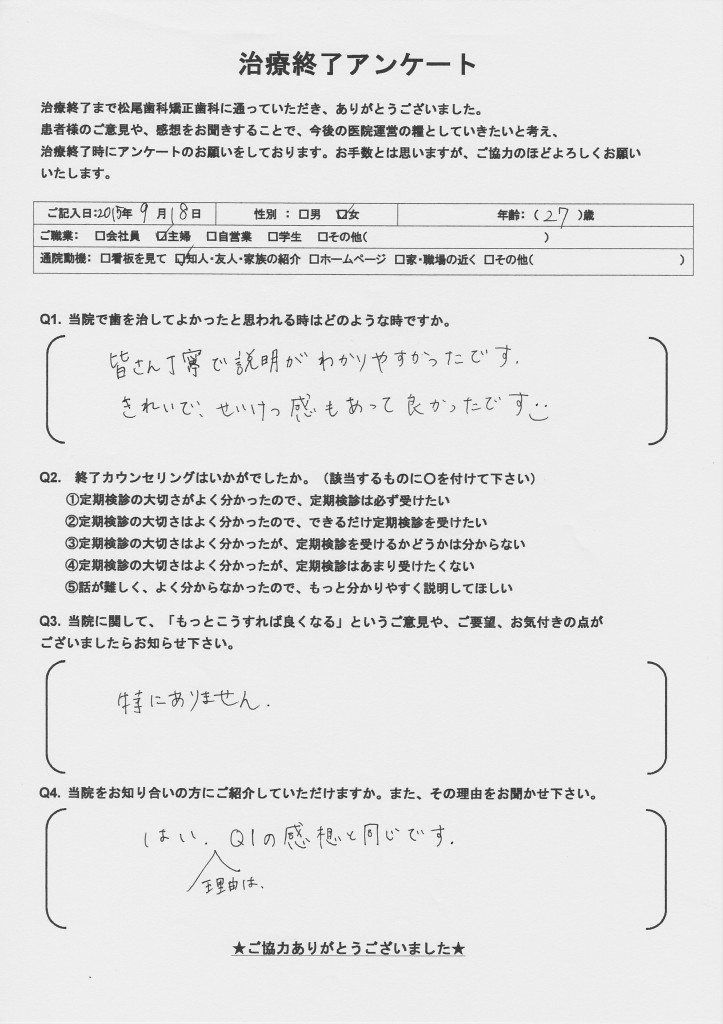 治療終了アンケート
治療終了まで松尾歯科矯正歯科に通っていただき、ありがとうございました。
患者様のご意見や、感想をお聞きすることで、今後の医院運営の糧としていきたいと考え、
治療終了時にアンケートのお願いをしております。お手数とは思いますが、ご協力のほどよろしくお願い
いたします。
ご記入日:2015年 9月 18日 性別 : □男 ☑女 年齢:( 27 )歳
ご職業: □会社員 ☑主婦 □自営業 □学生 □その他( )
通院動機: □看板を見て ☑知人・友人・家族の紹介 □ホームページ □家・職場の近く □その他( )
Q1. 当院で歯を治してよかったと思われる時はどのような時ですか。
皆さん丁寧で説明がわかりやすかったです.
きれいで、せいけつ感もあって良かったです
Q2. 終了カウンセリングはいかがでしたか。(該当するものに〇を付けて下さい)
①定期検診の大切さがよく分かったので、定期検診は必ず受けたい
②定期検診の大切さはよく分かったので、できるだけ定期検診を受けたい
③定期検診の大切さはよく分かったが、定期検診を受けるかどうかは分からない
④定期検診の大切さはよく分かったが、定期検診はあまり受けたくない
⑤話が難しく、よく分からなかったので、もっと分かりやすく説明してほしい
Q3. 当院に関して、「もっとこうすれば良くなる」というご意見や、ご要望、お気付きの点が
ございましたらお知らせ下さい。
特にありません.
Q4. 当院をお知り合いの方にご紹介していただけますか。また、その理由をお聞かせ下さい。
はい. Q1の感想と同じです.
理由は、
★ご協力ありがとうございました★